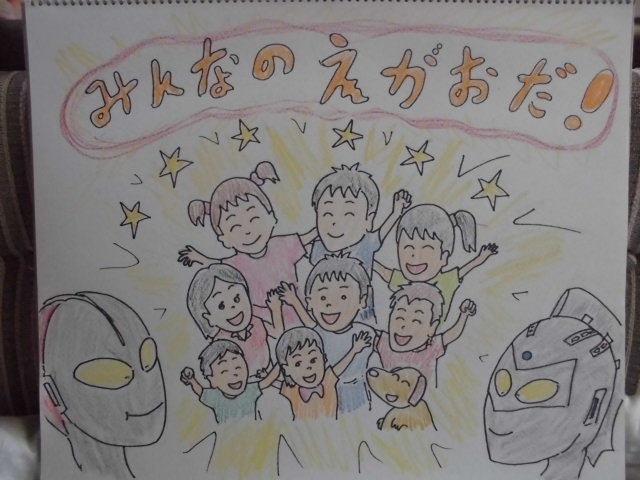 みんなの えがおだ!